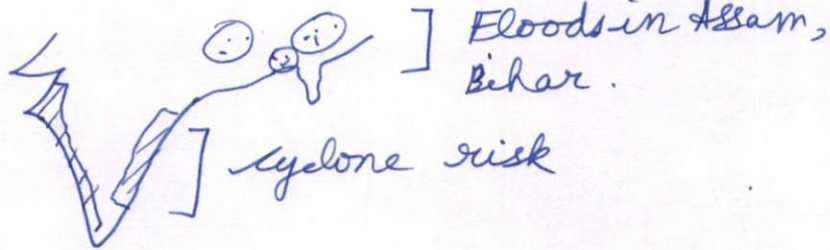 Floods in Assam,
Bihar.
cyclone risk